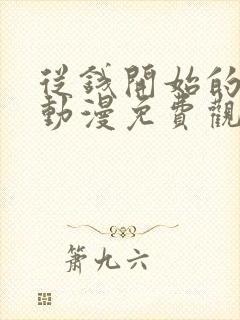 從錢開始的
動漫免費觀
簫九六